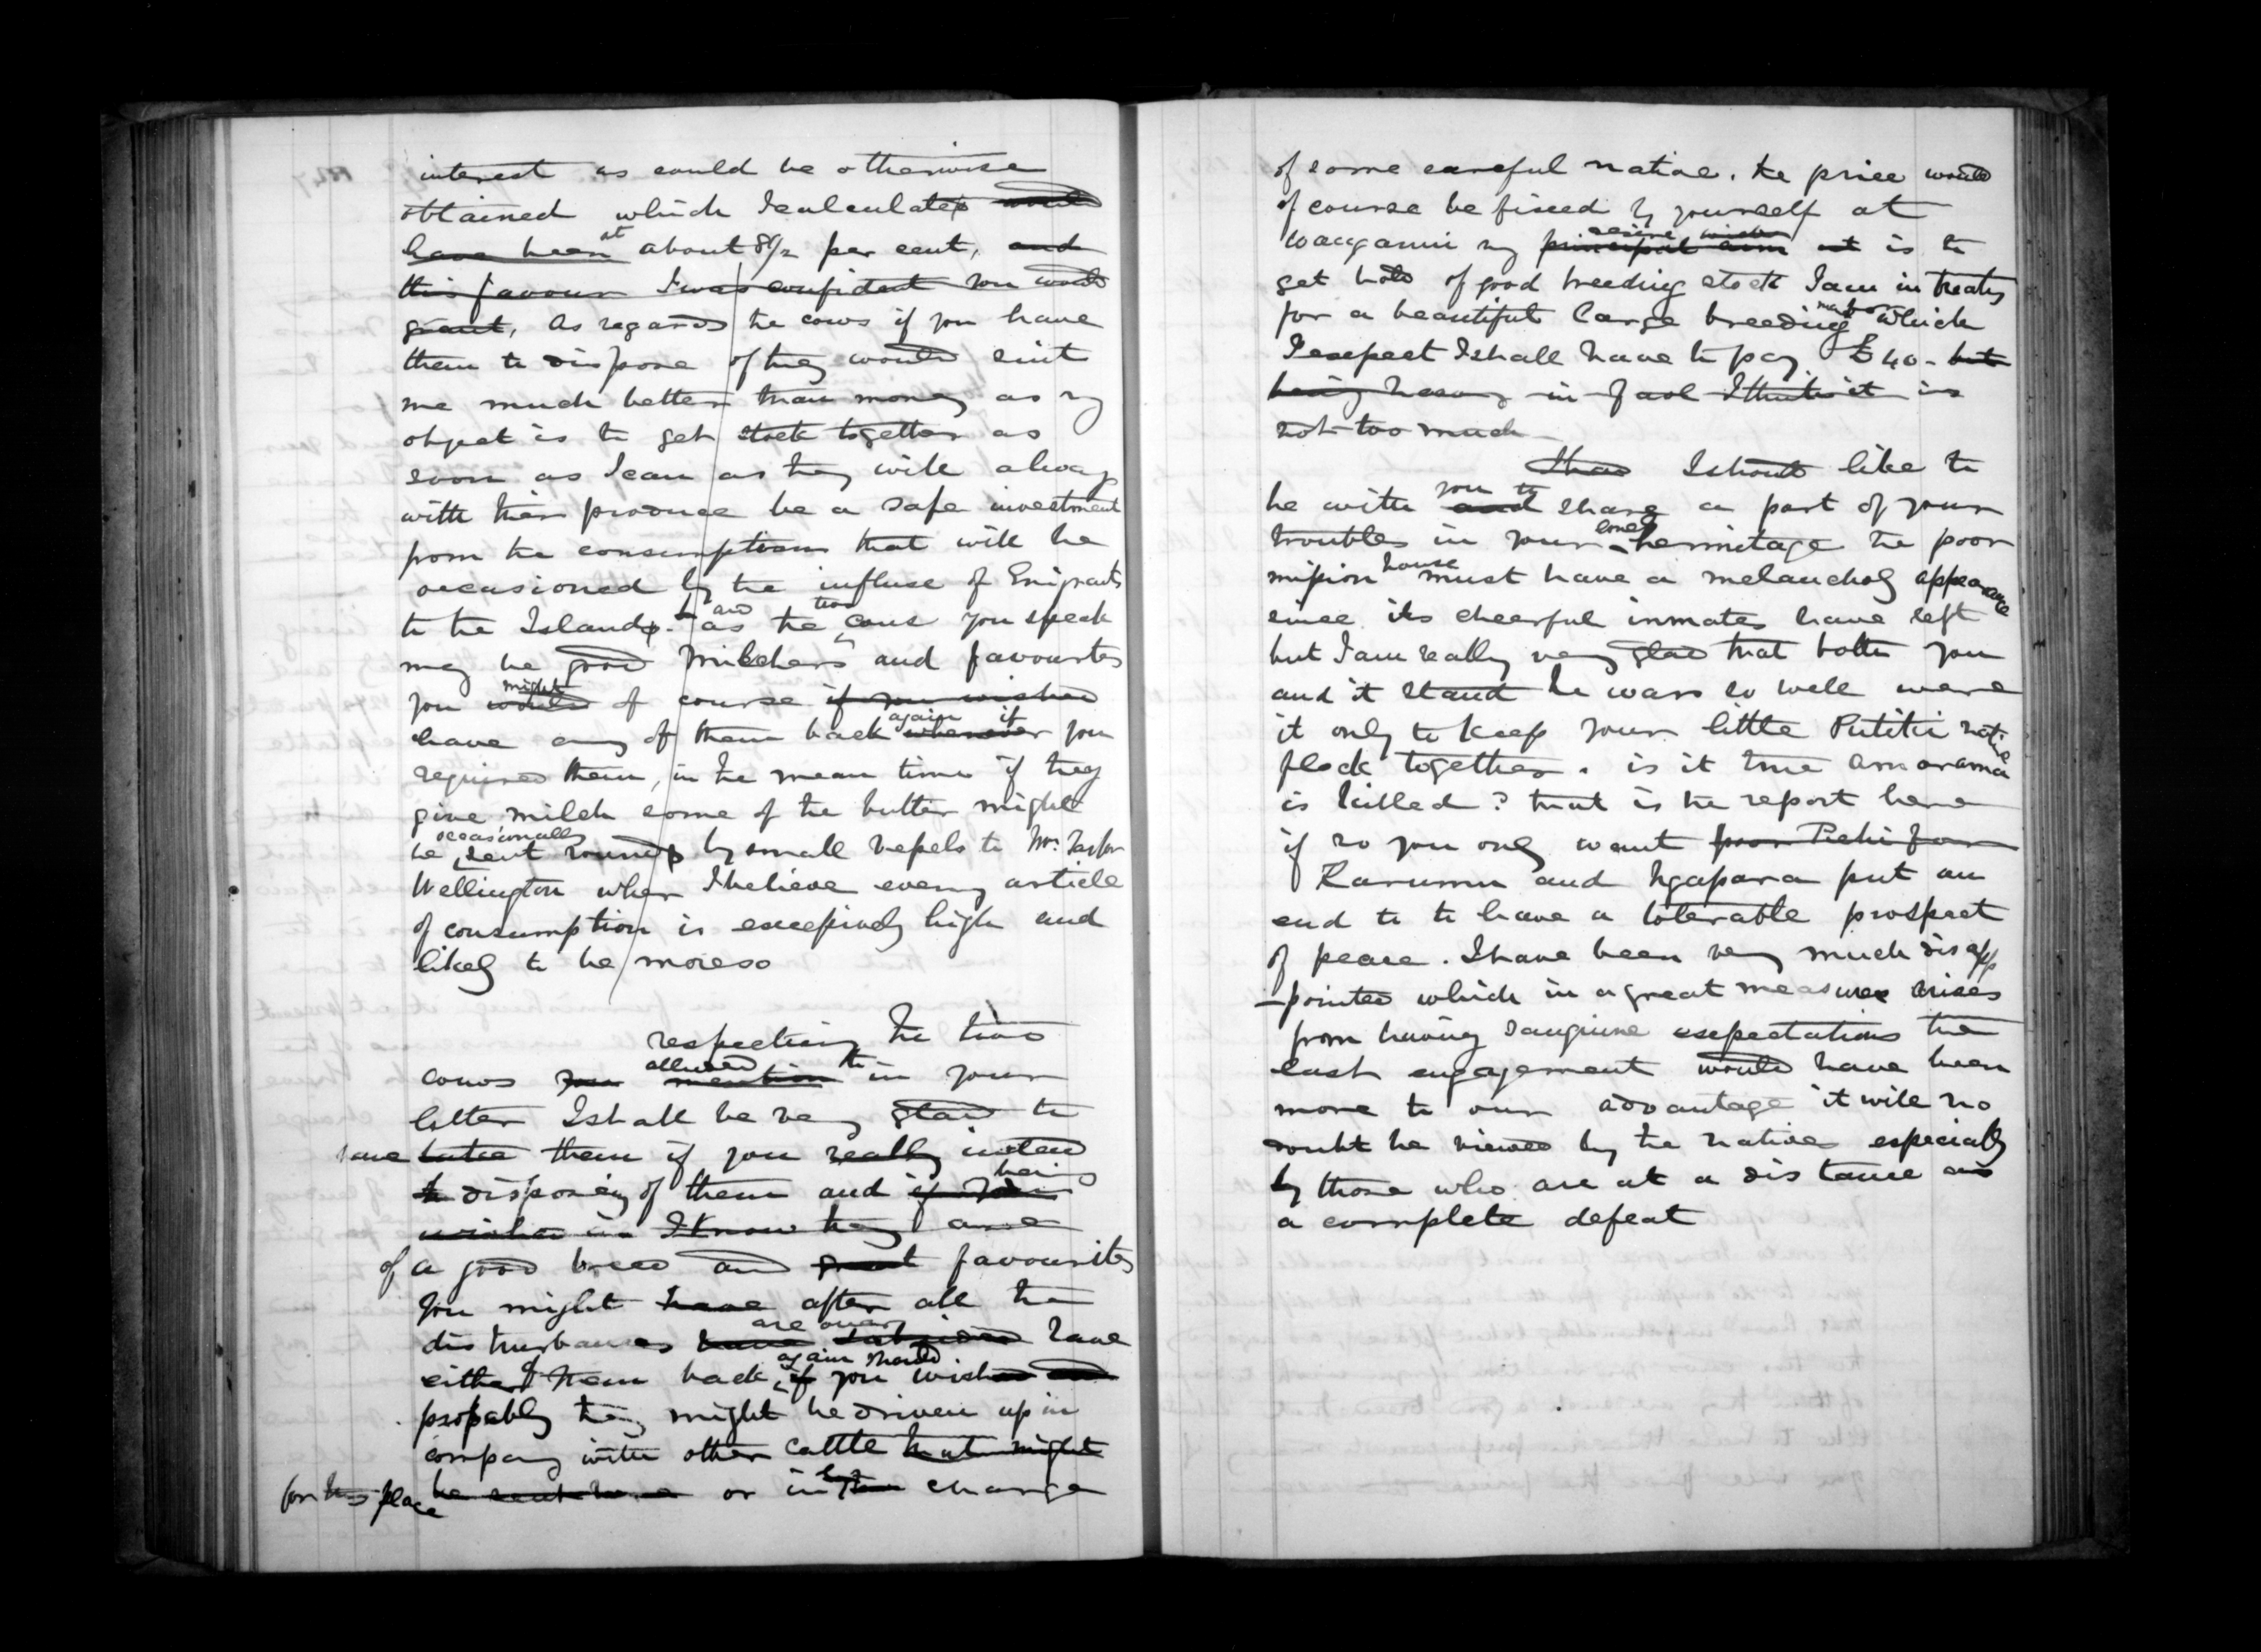 interest as could be otherwise
obtained which I calculated would
have been at about 8½ per cent, and
this favour I was confident you would
grant, As regards the cows if you have
them to dispose of they would suit
me much better than money as my
object is to get stock together as
soon as I can as they will always
with their produce be a safe investment
from the consumption that will be
occasioned by the influx of Emigrants
to the Islands. and as the two cows you speak
may be good milchers and favourites
you would might of course if you wished
have any of them back again whenever if you
required them, in the mean time if they
give milch some of the butter might
be occasionally sent round by small vessels to Mr. Taylor
Wellington when I believe every article
of consumption is excessively high and
likely to be more so
respecting the two
cows you mention alluded to in your
letter I shall be very glad to
have take them if you really intend
to disposing of them and if you being
wished as I know they are
of a good breed and great favourites
you might have after all the
disturbances have subsided are over have
either of them back again if should you wished and
propably they might be driven up in
company with other cattle that might
for this place be sent here or in the charge
of some careful native. the price would
of course be fixed by yourself at
Wanganui my principal aim desire wish it is to
get hold of good breeding stock I am in treaty
for a beautiful large breeding mare which
I expect I shall have to pay £40 - but
being heavy in foal I think it is
not too much
I should like to
be with you to and share a part of your
troubles in your lonely hermitage the poor
mission house must have a melancholy appearance
since its cheerful inmates have left
but I am really very glad that both you
and it stand the wars so well were
it only to keep your little Putiki native
flock together. is it true Amarama
is killed? that is the report here
if so you only want poor Pehi for
Karumu and Ngapara put an
end to to have a tolerable prospect
of peace. I have been very much disapp
-pointed which in a great measure arises
from having sanguine expectations the
last engagement would have been
more to our advantage it will no
doubt be viewed by the natives especially
by those who are at a distance as
a complete defeat